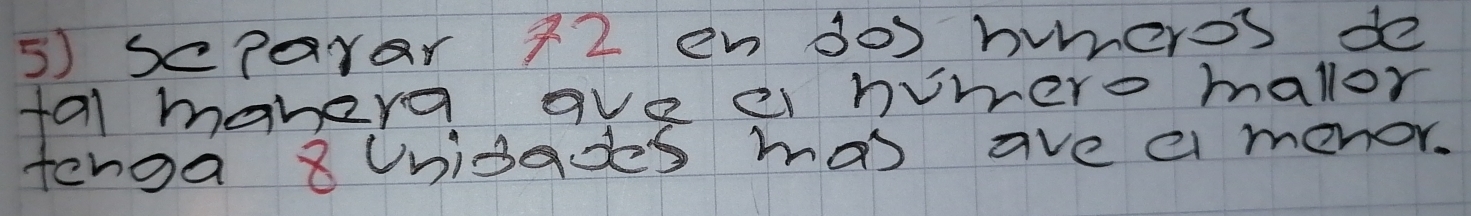 5) Separar 72 en dos numeros de
tal manera que el número mallor
tenga 8 Unidades mas que el menor.